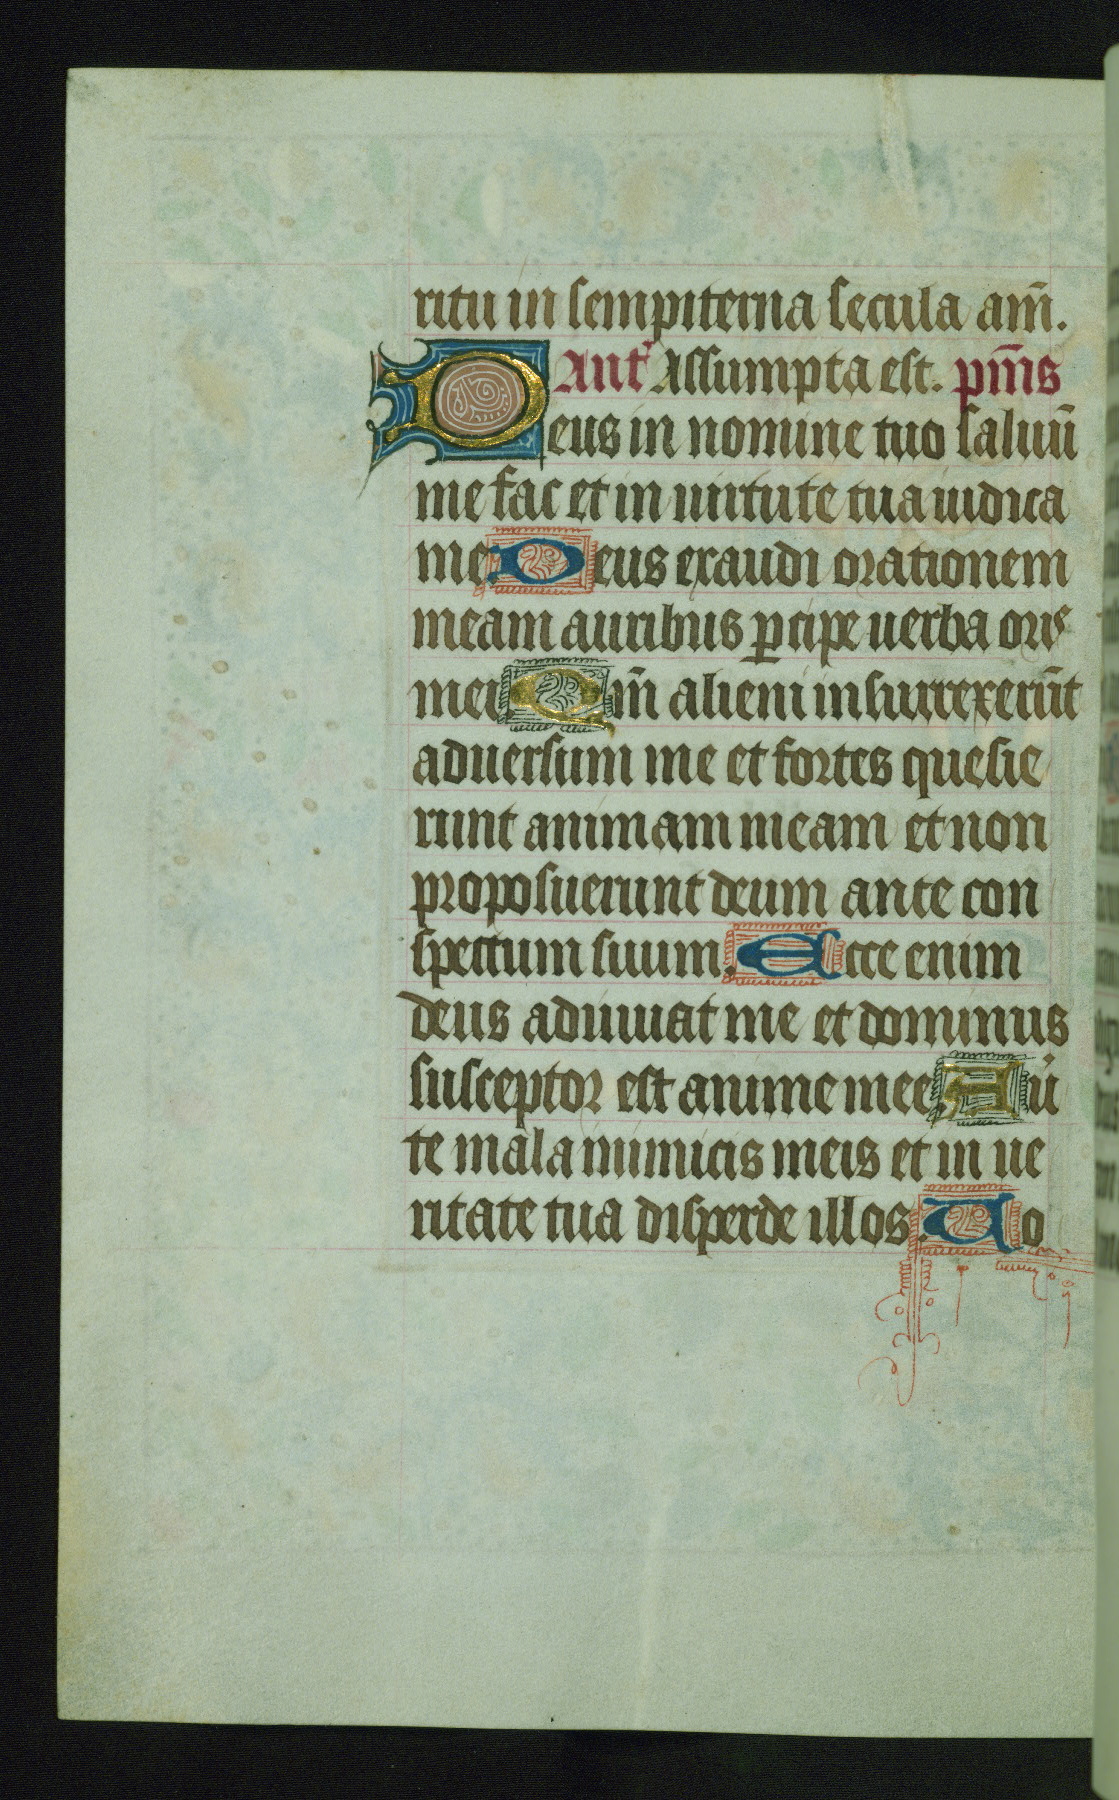 ritu in sempiterna secula am̄.
Ant' Assumpta est. pm̄s
Deus in nomine tuo saluū
me fac et in uirtute tua iudica
me. Deus exaudi orationem
meam auribus ꝑcipe uerba oris
mei. Qm̄ alieni insurrexerūt
aduersum me et fortes quesie
runt animam meam et non
proposuerunt deum ante con
spectum suum. Ecce enim
deus adiuuat me et dominus
susceptor est anime mee. Au̇
te mala inimicis meis et in ue
ritate tua disperde illos. Uo